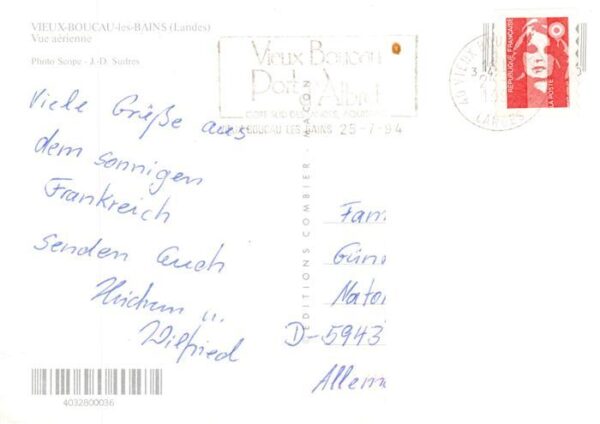 VIEUX-BOUCAU-les-BAINS (Landes)
Vue aérienne
Photo Scope - J.-D. Sudres
Vieux Boucau
Port d'Albret
BOUCAU LES BAINS 25-7-94
REPUBLIQUE FRANÇAISE
LA POSTE
Viele Grüße aus
dem sonnigen
Frankreich
senden Euch
u.
Wilfried
EDITIONS COMBIER MACON
Fam
Gün
D-5943
Allem
4032800036